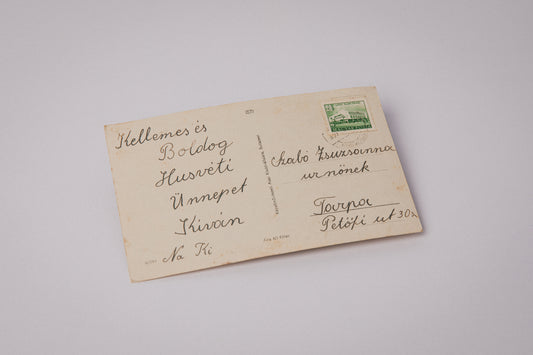 Kellemes és
Boldog
Husvéti
Ünnepet
Kíván
Na Ki
Szabó Zsuzsanna
urnőnek
Tarpa
Petőfi ut 30